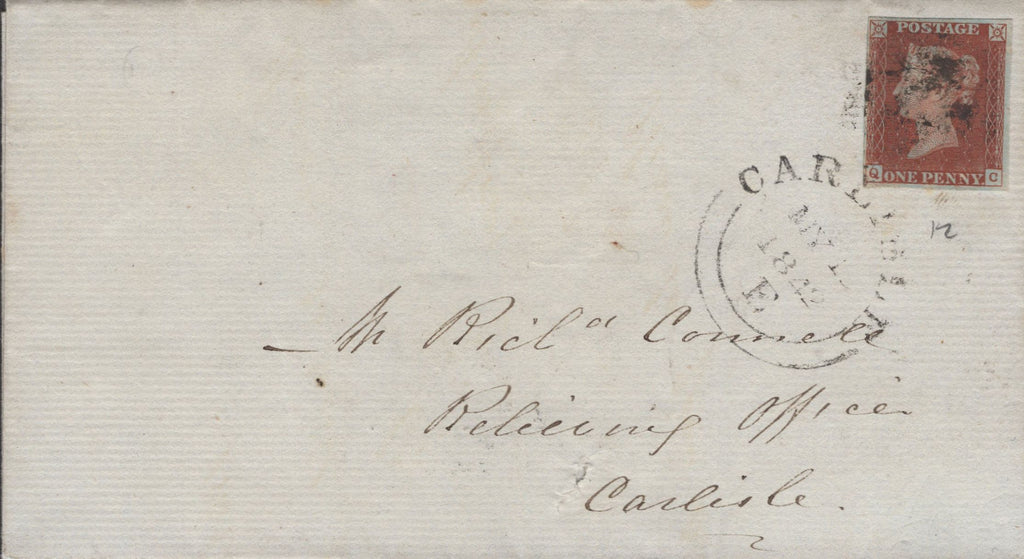 POSTAGE
Q ONE PENNY. C
CARLISLE
MY 1
1842
E
12
Mr Richd Connell
Relieving Officer
Carlisle.